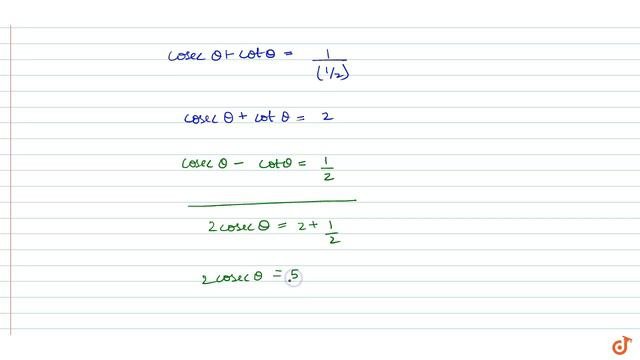 cosec θ + cot θ = 1/(1/2)
cosec θ + cot θ = 2
cosec θ - cot θ = 1/2
2 cosec θ = 2 + 1/2
2 cosec θ = 5